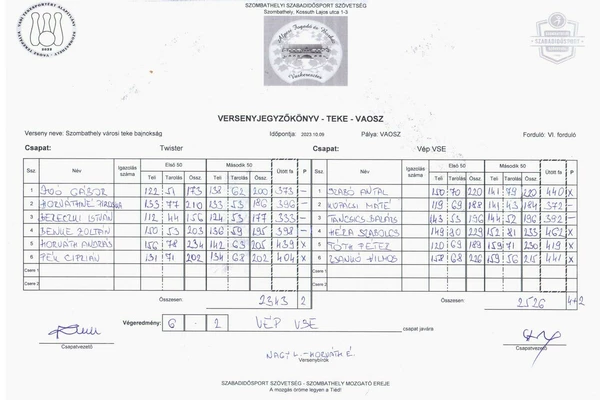 SZOMBATHELYI SZABADIDŐSPORT SZÖVETSÉG
Szombathely, Kossuth Lajos utca 1-3
VERSENYJEGYZŐKÖNYV - TEKE - VAOSZ
Verseny neve: Szombathely városi teke bajnokság Időpontja: 2023.10.09 Pálya: VAOSZ Forduló: VI. forduló
Csapat: Twister Csapat: Vép VSE
Ssz. Név Igazolás száma Első 50 Második 50 Ütött fa P Ssz. Név Igazolás száma Első 50 Második 50 Ütött fa P
Teli Tarolás Össz. Teli Tarolás Össz. Teli Tarolás Össz. Teli Tarolás Össz.
1 GÁBOR 122 51 173 138 62 200 373 - 1 SZABÓ ANTAL 150 70 220 141 79 220 440 X
2 HORVÁTHNÉ 133 77 210 133 53 186 396 - 2 MÁTÉ 119 69 188 141 43 184 372 -
3 ISTVÁN 112 44 156 124 53 177 333 - 3 TANCSICS BALÁZS 143 53 196 144 52 196 392 -
4 BENKE ZOLTÁN 150 53 203 136 59 195 398 - 4 SZABOLCS 149 80 229 152 81 233 462 X
5 HORVÁTH ANDRÁS 156 78 234 142 63 205 439 X 5 TÓTH PÉTER 120 69 189 159 71 230 419 X
6 PÉK CIPRIÁN 131 71 202 134 68 202 404 X 6 VILMOS 158 68 226 159 56 215 441 X
Csere 1 Csere 1
Csere 2 Csere 2
Összesen: 2343 2 Összesen: 2526 4+2
Végeredmény: 6 - 2 VÉP VSE csapat javára
Csapatvezető Csapatvezető
NAGY L. - HORVÁTH É.
Versenybírók
SZABADIDŐSPORT SZÖVETSÉG - SZOMBATHELY MOZGATÓ EREJE
A mozgás öröme legyen a Tiéd!